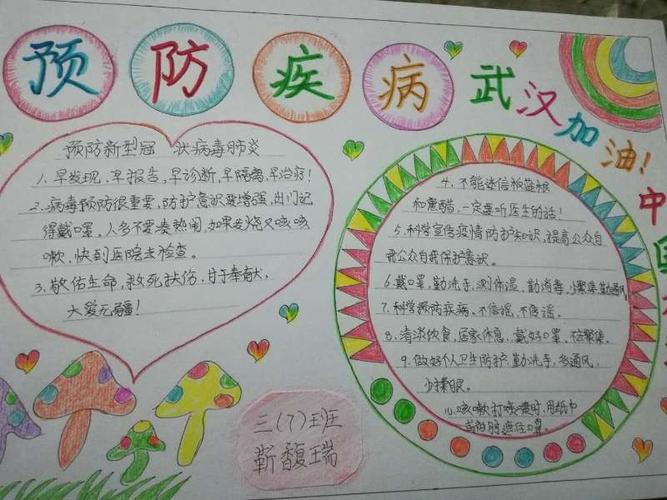 预防疾病
武汉加油!
中国
预防新型冠 状病毒肺炎
1、早发现,早报告,早诊断,早隔离,早治疗!
2、病毒预防很重要,防护意识要增强,出门记
得戴口罩,人多不要凑热闹,如果发烧又咳咳
嗽,快到医院去检查。
3、敬佑生命,救死扶伤,甘于奉献,
大爱无疆!
4、不能迷信板蓝根
和熏醋,一定要听医生的话!
5、科学宣传疫情防护知识,提高公众自
我公众自我保护意识。
6、戴口罩,勤洗手,测体温,勤消毒,少聚集,勤通风
7、科学预防疾病,不信谣,不传谣。
8、清淡饮食,居家休息,戴好口罩,不聚集。
9、做好个人卫生防护,勤洗手,多通风,
少揉眼。
10、咳嗽打喷嚏时,用纸巾
遮住口鼻。
三(7)班
靳馥瑞